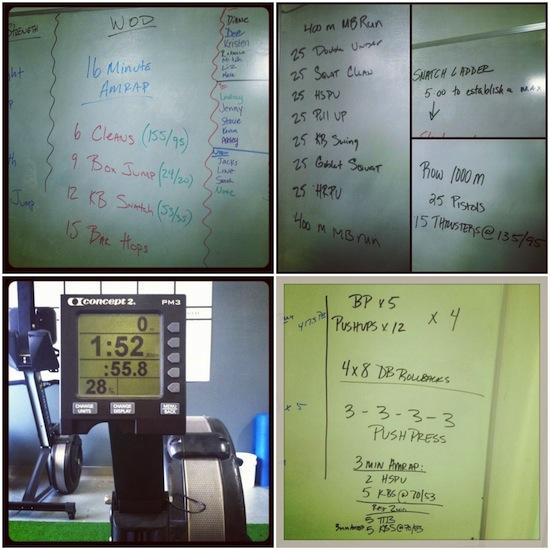 STRENGTH
WOD
16 Minute
AMRAP
6 Cleans (155/95)
9 Box Jump (24/20)
12 KB Snatch (53/35)
15 Bar Hops
Jump
Diane
Dee
Kristen
Liz
Lindsay
Jenny
Steve
Jacks
Love
Sarah
400 m MB Run
25 Double Under
25 Squat Clean
25 HSPU
25 Pull UP
25 KB Swing
25 Goblet Squat
25 HRPU
400 m MB run
SNATCH LADDER
5:00 to establish a max
Row 1000m
25 Pistols
15 Thrusters @ 135/95
concept 2.
PM3
0
1:52
:55.8
28
CHANGE UNITS
CHANGE DISPLAY
MENU BACK
BP x 5
PUSHUPS x 12
x 4
x 5
4x8 DB ROLLBACKS
3-3-3-3
PUSH PRESS
3 MIN AMRAP:
2 HSPU
5 KBS @ 70/53
Rest 2 min
5 TTB
3 min AMRAP 5 KBS @ 70/53